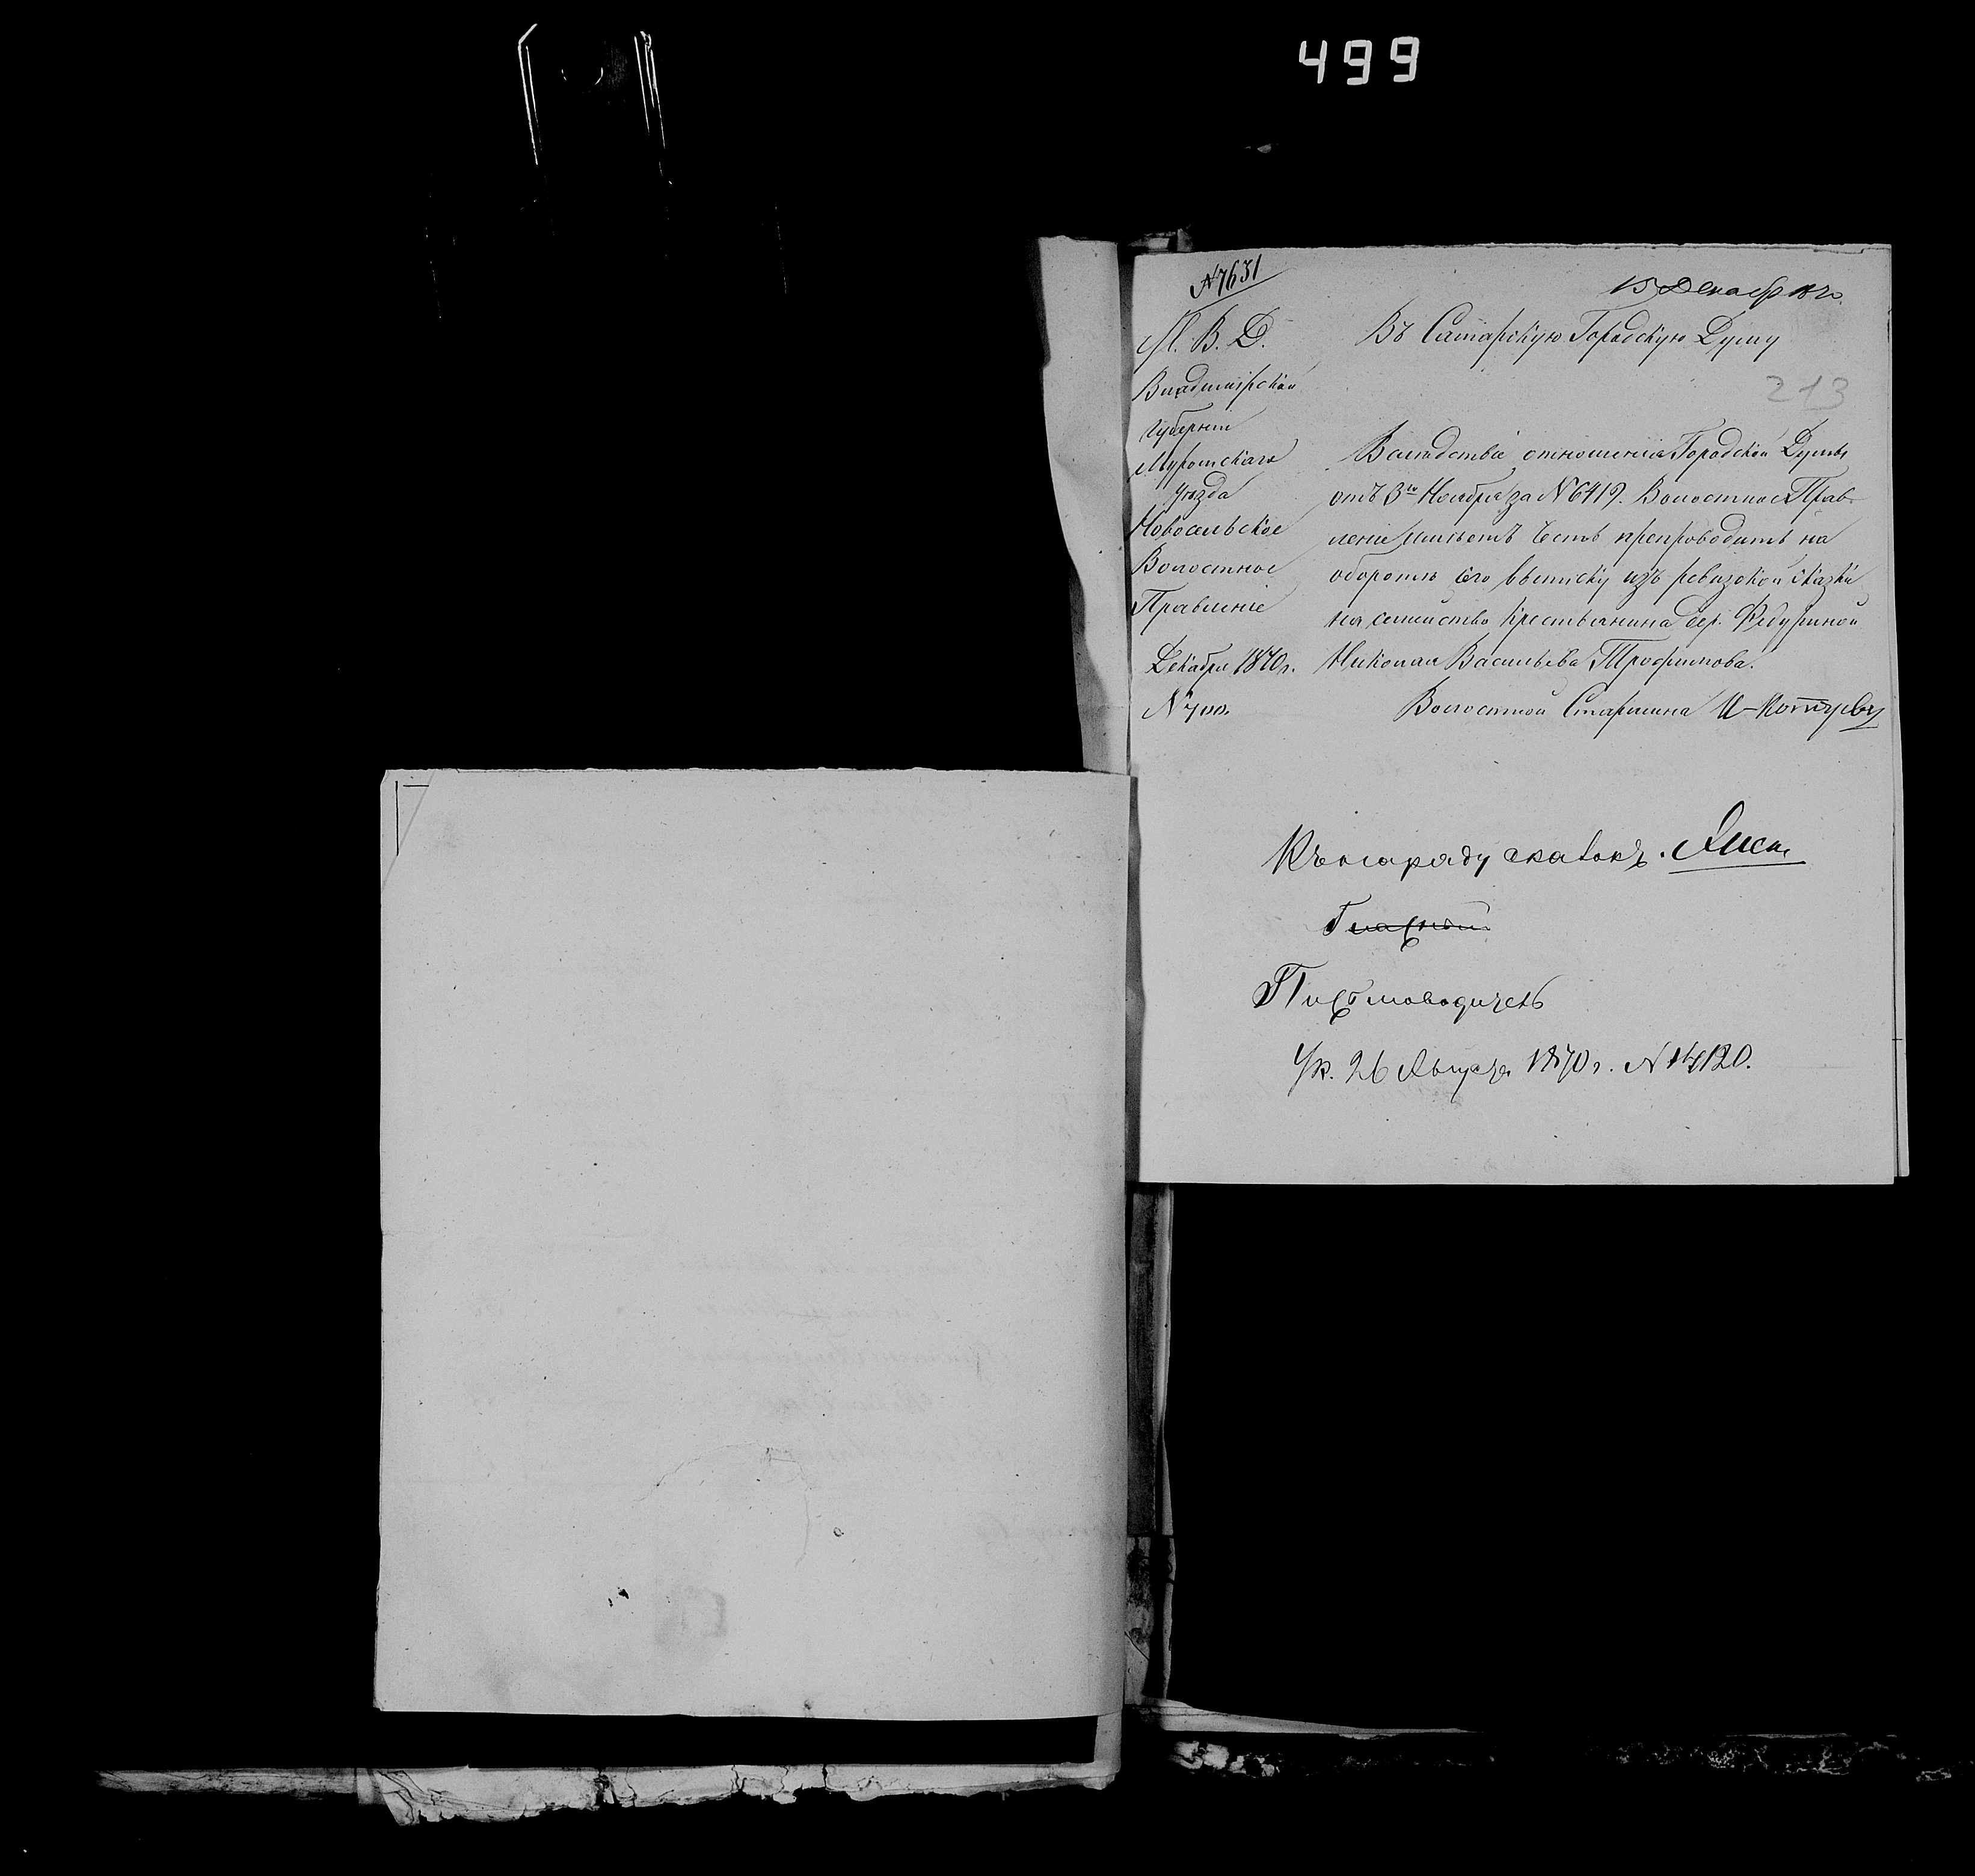 499
№ 7631
15 Декабр 1870
М. В. Д.
Владимірской
Губерніи
Муромскаго
Уѣзда
Новосельское
Волостное
Правленіе
Декабря 1870 г.
№
Въ Самарскую Городскую Думу
213
Вслѣдствіе отношенія Городской Думы
отъ 3го Ноября за № 6419. Волостное Прав-
леніе имѣетъ честь препроводить на
оборотѣ сего выписку изъ ревизской сказки
на семейство крестьянина дер. Федуриной
Николая Васильева Трофимова.
Волостной Старшина И.
Къ наряду сказокъ.
Гласный
Письмоводитель
Ук. 26 Августа 1870 г. № 14120.